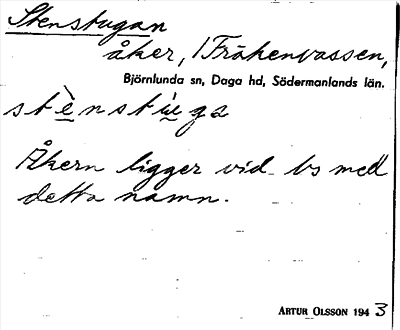 Stenstugan
åker, /Frökenvassen,
Björnlunda sn, Daga hd, Södermanlands län.
stènstùga
Åkern ligger vid bs med
detta namn.
ARTUR OLSSON 1943